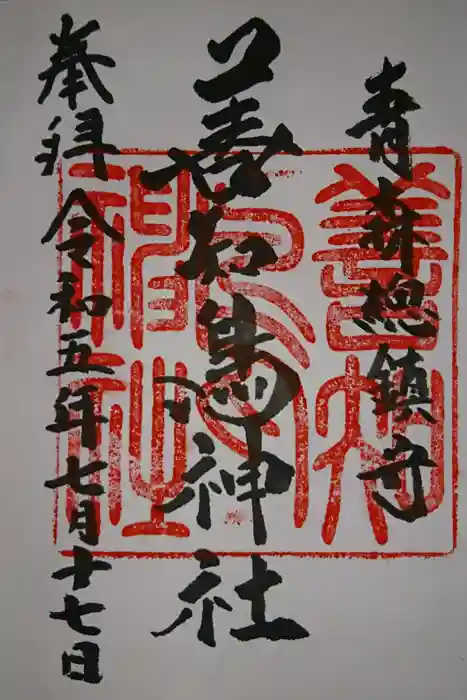 青森總鎮守
善知鳥神社
奉拝 令和五年七月十七日